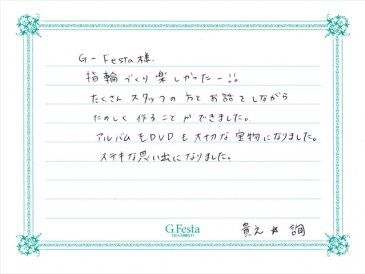 G-Festa様
指輪づくり楽しかったー!!
たくさんスタッフの方とお話をしながら
たのしく作ることができました。
アルバムもDVDも大切な宝物になりました。
ステキな思い出になりました。
G.Festa
貴之 ☆ 詞